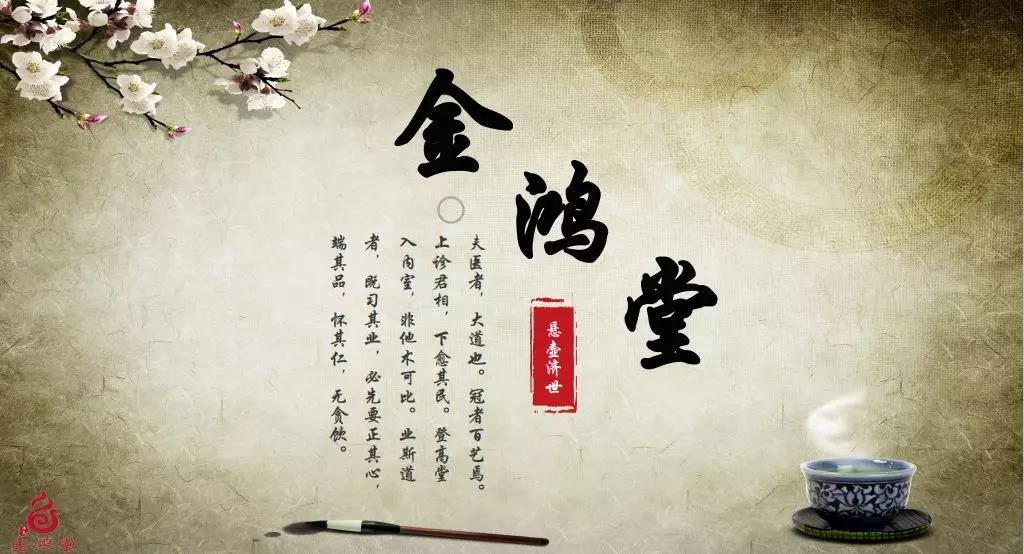 金鸿堂
悬壶济世
夫医者，大道也。冠者百艺焉。
上诊君相，下愈其民。登高堂
入内室，非他术可比。业斯道
者，既习其业，必先要正其心，
端其品，怀其仁，无贪饮。
金鸿堂